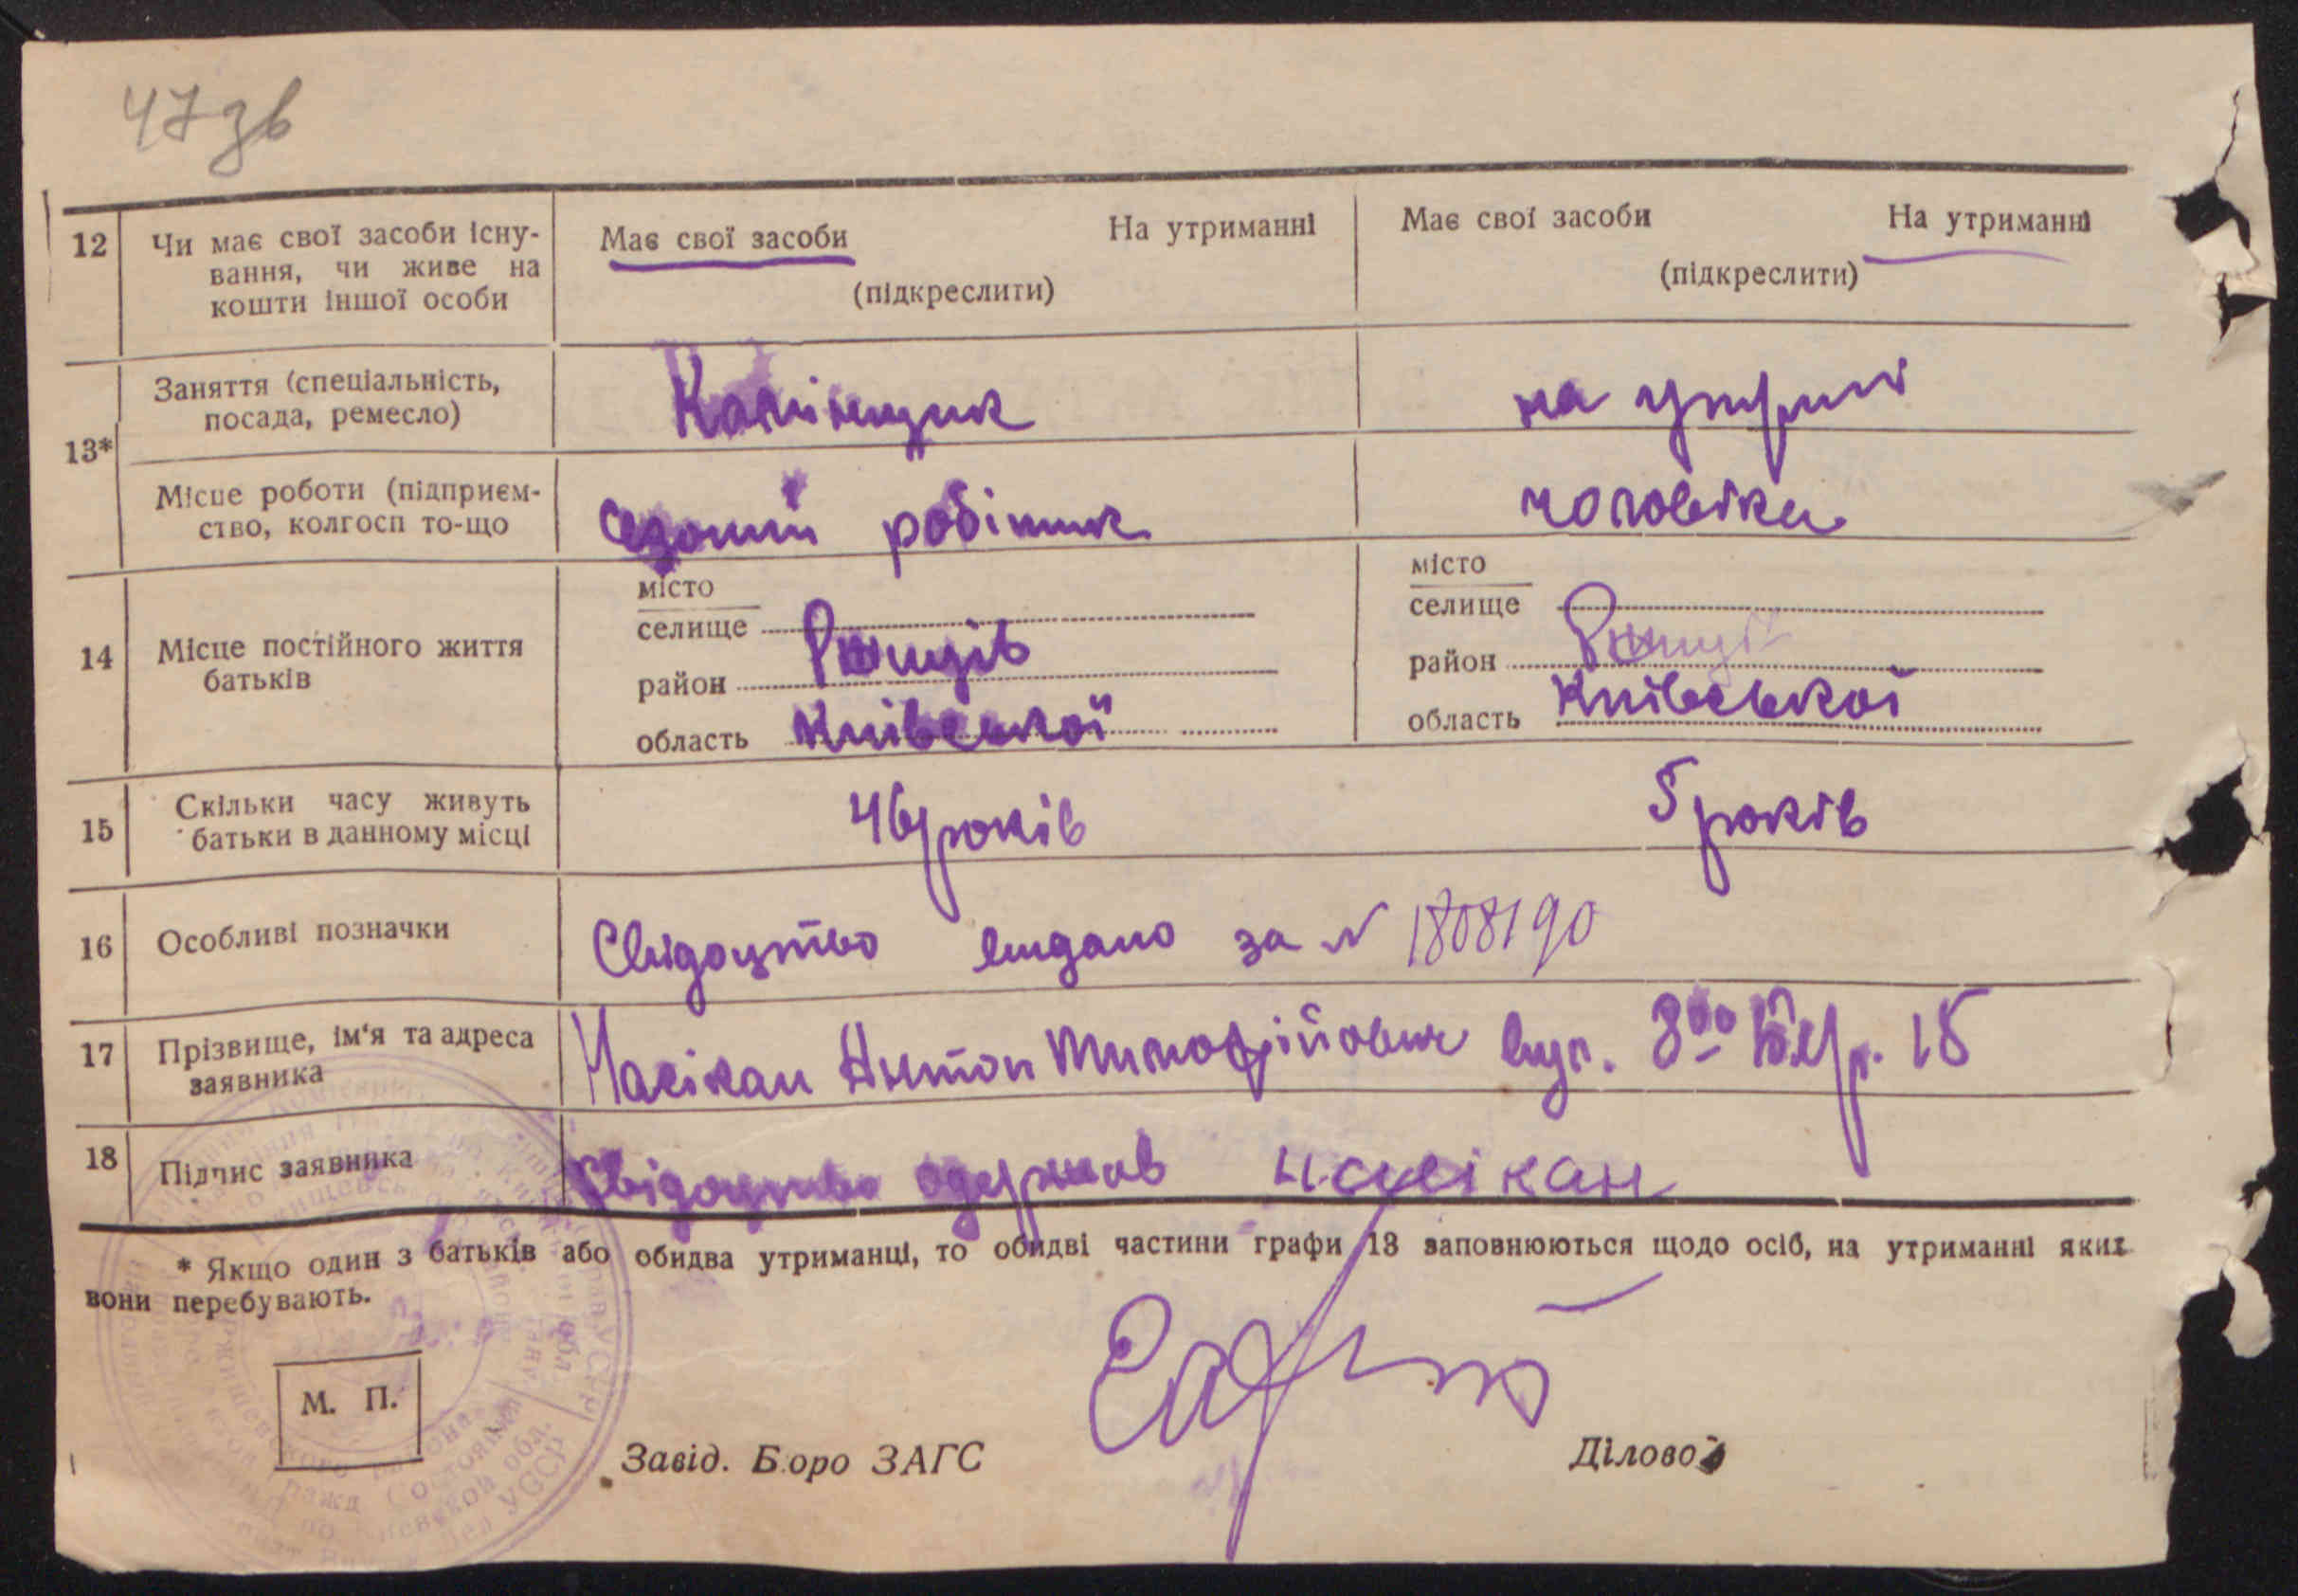 47 зв
12 Чи має свої засоби існу-
вання, чи живе на
кошти іншої особи
Має свої засоби На утриманні
(підкреслити)
Має свої засоби На утриманні
(підкреслити)
13*
Заняття (спеціальність,
посада, ремесло)
на
Місце роботи (підприєм-
ство, колгосп то-що
робітник
чоловіка
14 Місце постійного життя
батьків
місто
селище
район Ржищів
область Київської
місто
селище
район Ржищів
область Київської
15 Скільки часу живуть
батьки в данному місці
46 років
5 років
16 Особливі позначки
Свідоцтво видано за № 1808190
17 Прізвище, ім'я та адреса
заявника
Антон Тимофійович вул. 15
18 Підпис заявника
Свідоцтво одержав
* Якщо один з батьків або обидва утриманці, то обидві частини графи 13 заповнюються щодо осіб, на утриманні яких
вони перебувають.
М. П.
Завід. Бюро ЗАГС
Діловод